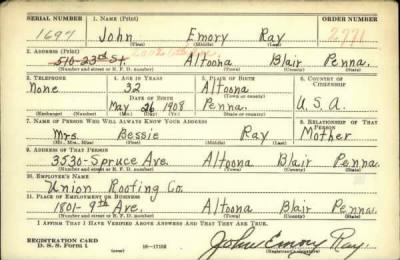 SERIAL NUMBER 1. NAME (Print) ORDER NUMBER
1697 John Emory Ray 2771
(First) (Middle) (Last)
2. ADDRESS (Print)
510-23rd St. Altoona Blair Penna.
(Number and street or R. F. D. number) (Town) (County) (State)
3. TELEPHONE 4. AGE IN YEARS 5. PLACE OF BIRTH 6. COUNTRY OF CITIZENSHIP
None 32 Altoona
DATE OF BIRTH (Town or county)
May 26 1908 Penna. U.S.A.
(Mo.) (Day) (Yr.) (State or country)
7. NAME OF PERSON WHO WILL ALWAYS KNOW YOUR ADDRESS 8. RELATIONSHIP OF THAT PERSON
Mrs. Bessie Ray Mother
(Mr., Mrs., Miss) (First) (Middle) (Last)
9. ADDRESS OF THAT PERSON
3530-Spruce Ave. Altoona Blair Penna.
(Number and street or R. F. D. number) (Town) (County) (State)
10. EMPLOYER'S NAME
Union Roofing Co.
11. PLACE OF EMPLOYMENT OR BUSINESS
1801-9th Ave. Altoona Blair Penna.
(Number and street or R. F. D. number) (Town) (County) (State)
I AFFIRM THAT I HAVE VERIFIED ABOVE ANSWERS AND THAT THEY ARE TRUE.
REGISTRATION CARD
D. S. S. FORM 1 John Emory Ray
(Registrant's signature)